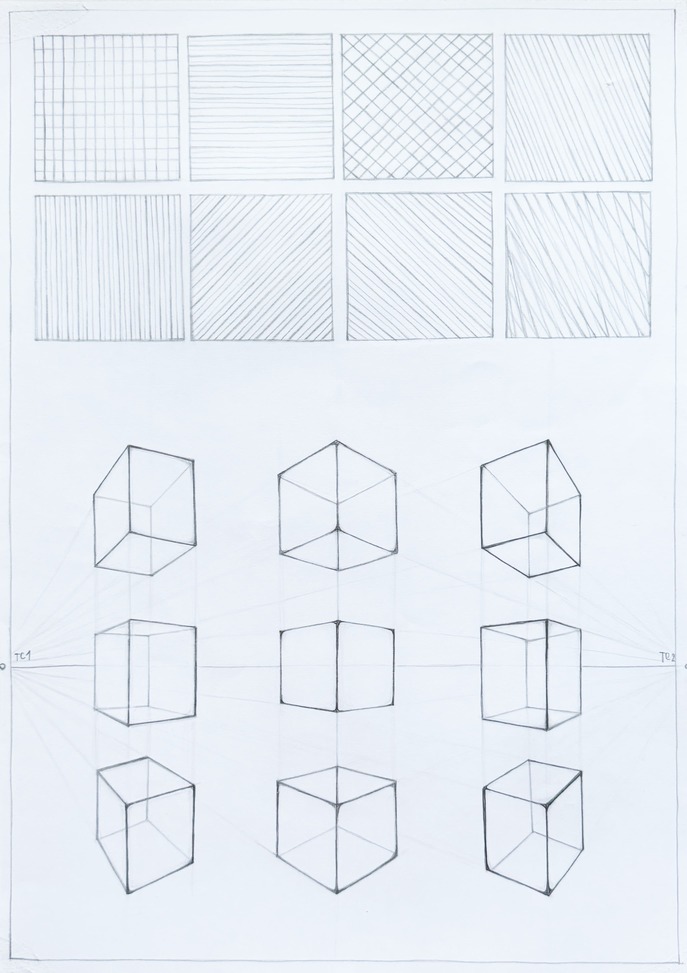 TC1
TC2